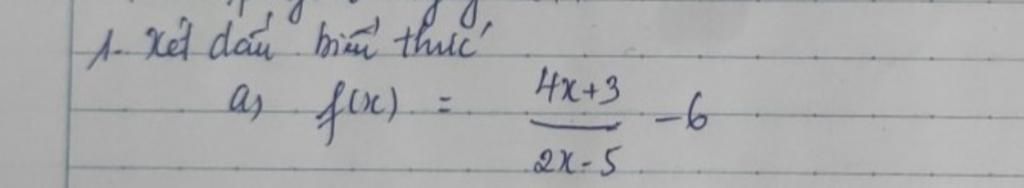 1. Xét dấu biểu thức
a, f(x) = \frac{4x+3}{2x-5} - 6